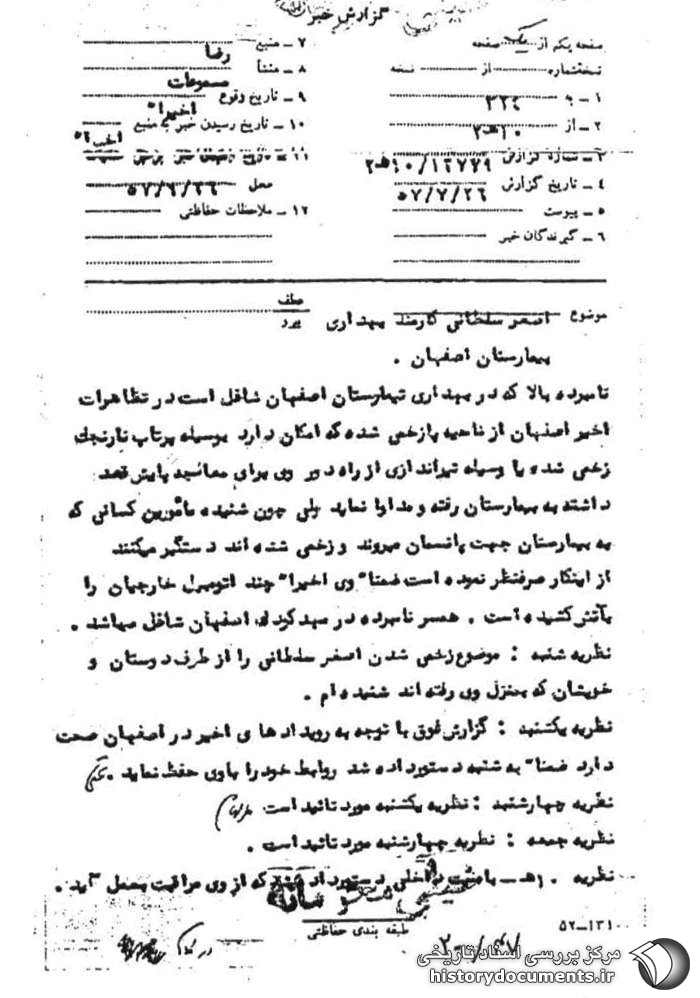 گزارش خبر
صفحه یکم از یک صفحه
نسخه شماره از نسخه
۱ ــ به ۳۲٤
۲ ــ از ۱۰هـ۲
۳ ــ شماره گزارش
٤ ــ تاریخ گزارش ۵۷/۷/۲۶
۵ ــ پیوست
۶ ــ گیرندگان خبر
۷ ــ منبع رضا
۸ ــ منشأ مسموعات
۹ ــ تاریخ وقوع اخیرا"
۱۰ ــ تاریخ رسیدن خبر به منبع اخیرا"
۱۱ ــ تاریخ رسیدن خبر
محل
۱۲ ــ ملاحظات حفاظتی
عطف
پیرو
موضوع اصغر سلطانی کارمند بهداری
بیمارستان اصفهان .
نامبرده بالا که در بهداری بیمارستان اصفهان شاغل است در تظاهرات
اخیر اصفهان از ناحیه پا زخمی شده که امکان دارد بوسیله پرتاب نارنجک
زخمی شده یا وسیله تیراندازی از راه دور وی برای معالجه پایش قصد
داشته به بیمارستان رفته و مداوا نماید ولی چون شنیده مأمورین کسانی که
به بیمارستان جهت پانسمان میروند و زخمی شده اند دستگیر میکنند
از اینکار صرفنظر نموده است ضمنا" وی اخیرا" چند اتومبیل خارجیان را
بآتش کشیده است . همسر نامبرده در اصفهان شاغل میباشد .
نظریه شنبه : موضوع زخمی شدن اصغر سلطانی را از طرف دوستان و
خویشان که بمنزل وی رفته اند شنیده ام .
نظریه یکشنبه : گزارش فوق با توجه به رویدادهای اخیر در اصفهان صحت
دارد ضمنا" به شنبه دستور داده شد روابط خود را باوی حفظ نماید .
نظریه چهارشنبه : نظریه یکشنبه مورد تائید است
نظریه جمعه : نظریه چهارشنبه مورد تائید است .
نظریه ۱۰هـ ــ دستور داده شد که از وی مراقبت بعمل آید .
طبقه بندی حفاظتی
۵۲ــ۱۳۱۰۰
مرکز بررسی اسناد تاریخی
historydocuments.ir